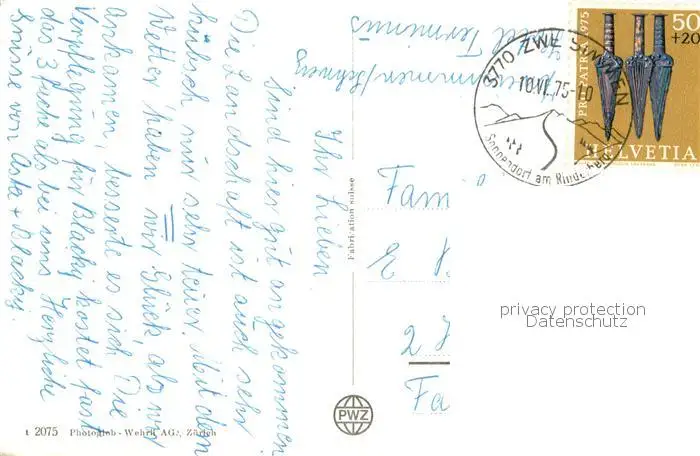 Hotel Terminus
Zweisimmen/Schweiz
Ihr Lieben.
Sind hier gut angekommen.
Die Landschaft ist auch sehr
hübsch nur sehr teuer. Mit dem
Wetter haben wir Glück, als wir
ankamen, besserte es sich. Die
Verpflegung für Blacky kostet fast
das 3 fache als bei uns. Herzliche
Grüsse von Asta + Blacky.
Fabrication suisse
t 2075 Photoglob-Wehrli AG, Zürich
PWZ
3770 ZWEISIMMEN
10.VI.75-10
Sonnendorf am
PRO PATRIA 1975
50
+20
HELVETIA
Fam
E
2
Fa
privacy protection
Datenschutz